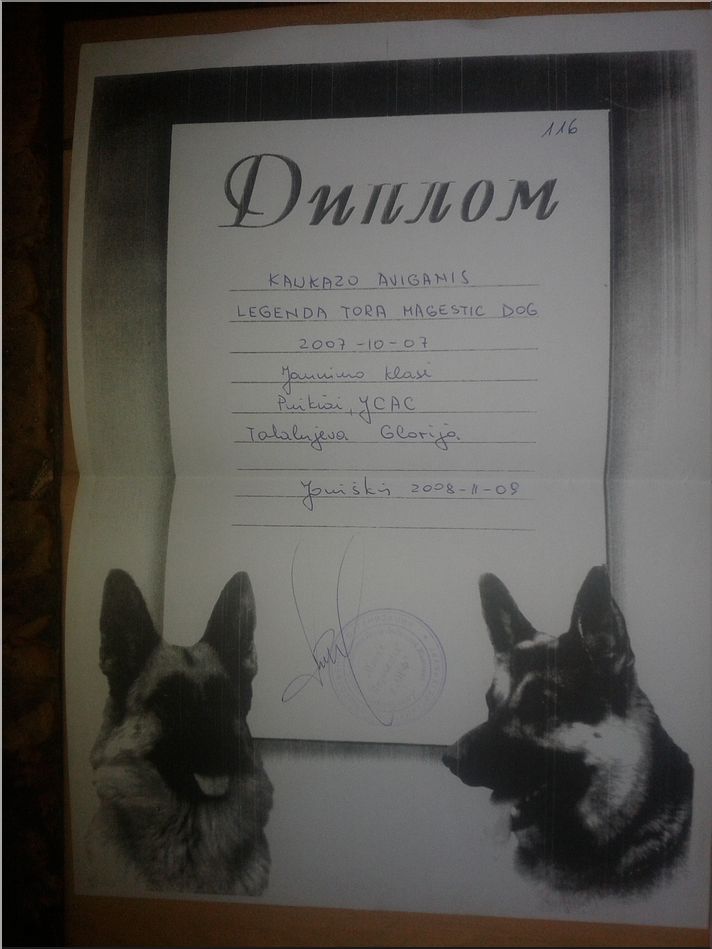 116
Диплом
KAUKAZO AVIGANIS
LEGENDA TORA MAGESTIC DOG
2007-10-07
Jaunimo klasė
Puikiai, JCAC
Talalujeva Glorija
Joniškis 2008-11-09